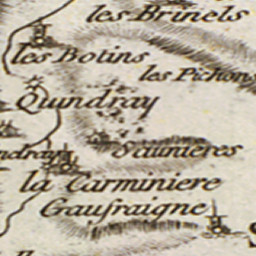 les Brinels
les Botins
les Pichons
Quindray
ndray
Saunieres
la Carminiere
Gaufraigne
S